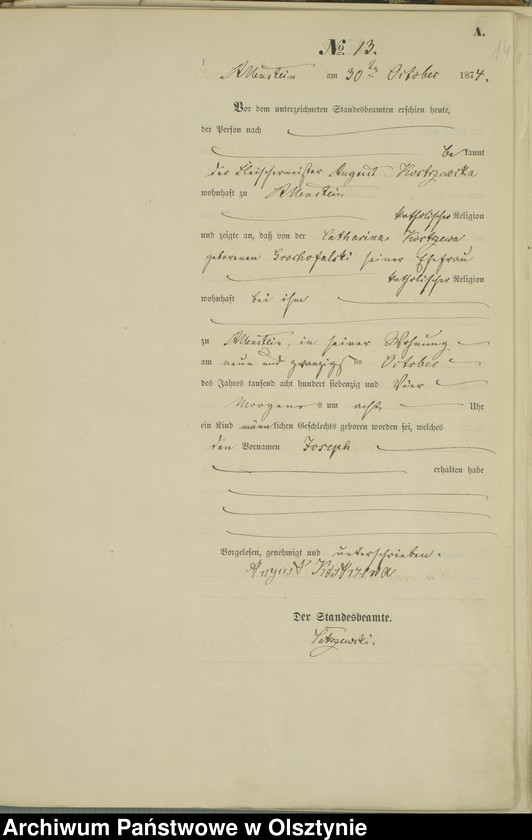 A.
No. 13.
Allenstein am 30ten October 1874.
Vor dem unterzeichneten Standesbeamten erschien heute,
der Person nach
bekannt
der Fleischermeister August Kostrzewska
wohnhaft zu Allenstein
katholischer Religion
und zeigte an, daß von der Catharina Kostrzewa
geborenen Grochofalski seiner Ehefrau
katholischer Religion
wohnhaft bei ihm
zu Allenstein, in seiner Wohnung
am neun und zwanzigs ten October
des Jahres tausend acht hundert siebenzig und Vier
Morgens um acht Uhr
ein Kind männlichen Geschlechts geboren worden sei, welches
den Vornamen Joseph
erhalten habe
Vorgelesen, genehmigt und unterschrieben.
August
Der Standesbeamte.
Archiwum Państwowe w Olsztynie